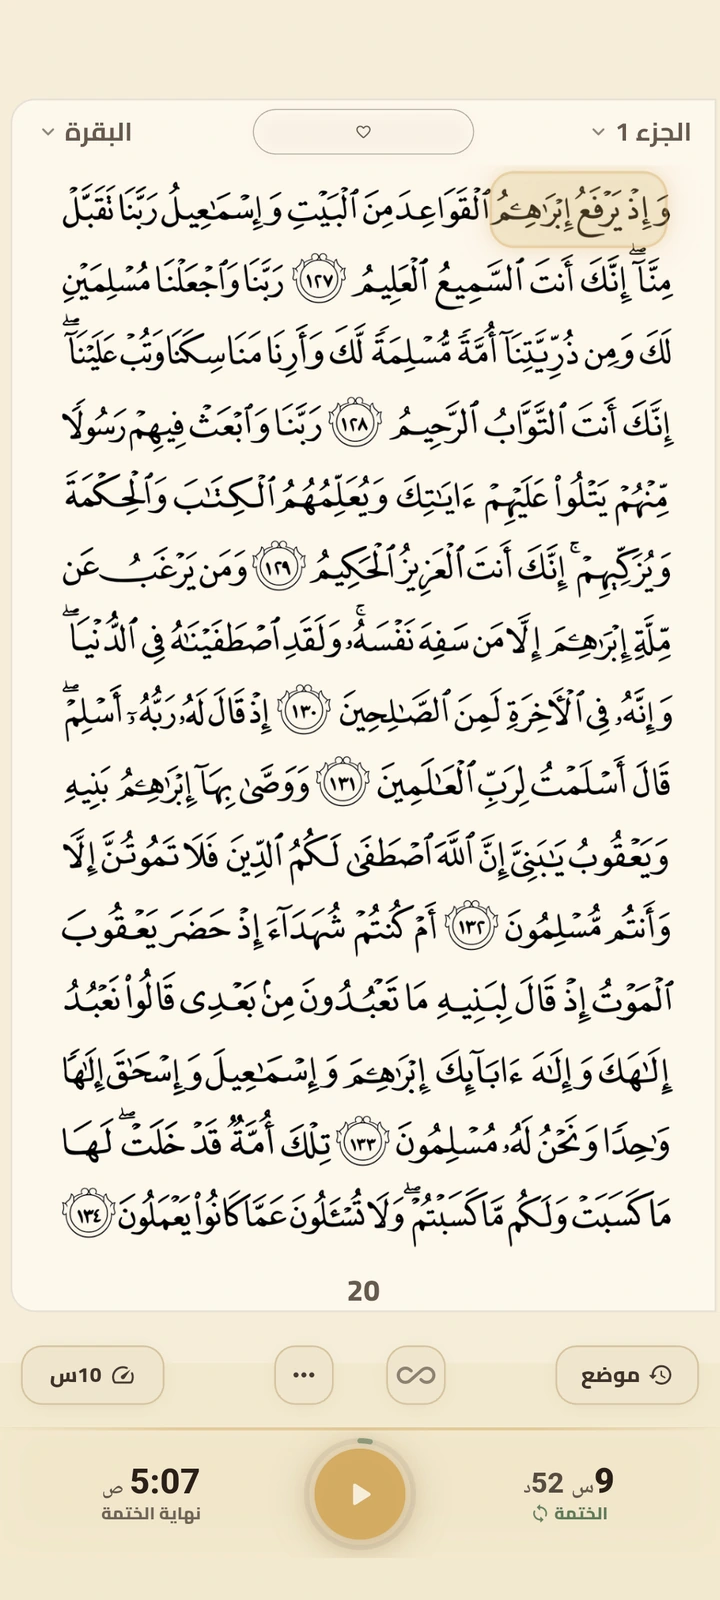 الجزء 1
البقرة
وَإِذْ يَرْفَعُ إِبْرَٰهِـۧمُ ٱلْقَوَاعِدَ مِنَ ٱلْبَيْتِ وَإِسْمَـٰعِيلُ رَبَّنَا تَقَبَّلْ
مِنَّآ ۖ إِنَّكَ أَنتَ ٱلسَّمِيعُ ٱلْعَلِيمُ ١٢٧ رَبَّنَا وَٱجْعَلْنَا مُسْلِمَيْنِ
لَكَ وَمِن ذُرِّيَّتِنَآ أُمَّةً مُّسْلِمَةً لَّكَ وَأَرِنَا مَنَاسِكَنَا وَتُبْ عَلَيْنَآ ۖ
إِنَّكَ أَنتَ ٱلتَّوَّابُ ٱلرَّحِيمُ ١٢٨ رَبَّنَا وَٱبْعَثْ فِيهِمْ رَسُولًا
مِّنْهُمْ يَتْلُوا۟ عَلَيْهِمْ ءَايَـٰتِكَ وَيُعَلِّمُهُمُ ٱلْكِتَـٰبَ وَٱلْحِكْمَةَ
وَيُزَكِّيهِمْ ۚ إِنَّكَ أَنتَ ٱلْعَزِيزُ ٱلْحَكِيمُ ١٢٩ وَمَن يَرْغَبُ عَن
مِّلَّةِ إِبْرَٰهِـۧمَ إِلَّا مَن سَفِهَ نَفْسَهُۥ ۚ وَلَقَدِ ٱصْطَفَيْنَـٰهُ فِى ٱلدُّنْيَا ۖ
وَإِنَّهُۥ فِى ٱلْـَٔاخِرَةِ لَمِنَ ٱلصَّـٰلِحِينَ ١٣٠ إِذْ قَالَ لَهُۥ رَبُّهُۥٓ أَسْلِمْ ۖ
قَالَ أَسْلَمْتُ لِرَبِّ ٱلْعَـٰلَمِينَ ١٣١ وَوَصَّىٰ بِهَآ إِبْرَٰهِـۧمُ بَنِيهِ
وَيَعْقُوبُ يَـٰبَنِىَّ إِنَّ ٱللَّهَ ٱصْطَفَىٰ لَكُمُ ٱلدِّينَ فَلَا تَمُوتُنَّ إِلَّا
وَأَنتُم مُّسْلِمُونَ ١٣٢ أَمْ كُنتُمْ شُهَدَآءَ إِذْ حَضَرَ يَعْقُوبَ
ٱلْمَوْتُ إِذْ قَالَ لِبَنِيهِ مَا تَعْبُدُونَ مِنۢ بَعْدِى قَالُوا۟ نَعْبُدُ
إِلَـٰهَكَ وَإِلَـٰهَ ءَابَآئِكَ إِبْرَٰهِـۧمَ وَإِسْمَـٰعِيلَ وَإِسْحَـٰقَ إِلَـٰهًا
وَٰحِدًا وَنَحْنُ لَهُۥ مُسْلِمُونَ ١٣٣ تِلْكَ أُمَّةٌ قَدْ خَلَتْ ۖ لَهَا
مَا كَسَبَتْ وَلَكُم مَّا كَسَبْتُمْ ۖ وَلَا تُسْـَٔلُونَ عَمَّا كَانُوا۟ يَعْمَلُونَ ١٣٤
20
موضع
10س
9س 52د
الختمة
5:07 ص
نهاية الختمة